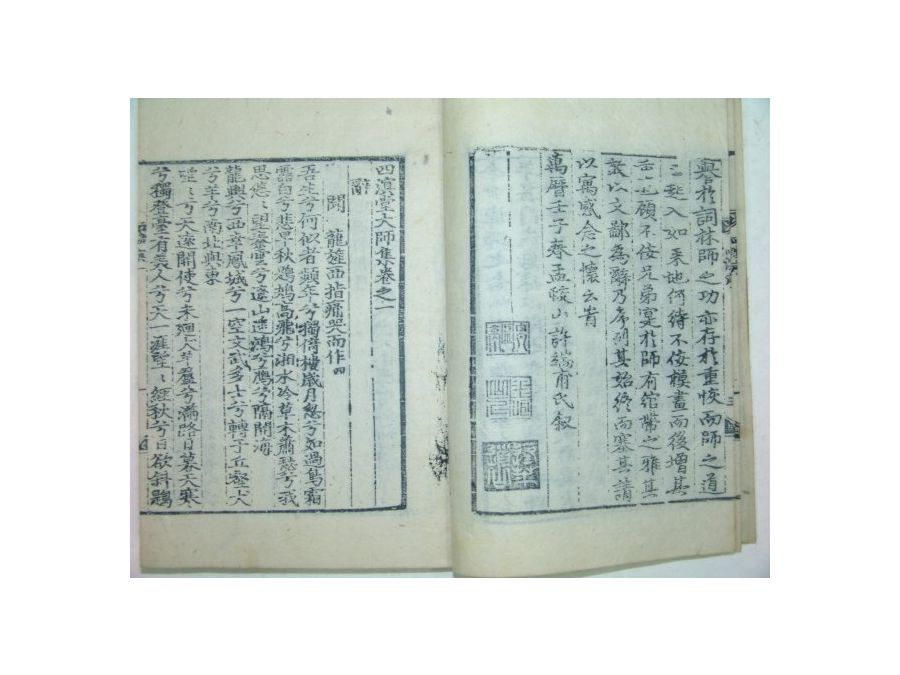 譽於詞林師之功亦存於重恢而師之道
已超入如來地何待不佞模畫而後增其
重也顧不佞兄弟寔於師有綰帶之雅其
敢以文鄙爲辭乃序列其始終而塞其請
以寓感念之懷云旹
萬曆壬子春孟蛟山許端甫氏叙
四溟堂大師集卷之一
辭
聞 龍旌西指痛哭而作四
吾生兮何似者頹年兮獨倚樓歲月忽兮如過鳥霜
露白兮悲早秋鷓鴣高飛兮湘水冷草木蕭瑟兮我
思悠悠望秦雲兮遠山遮鴻兮鷹兮隔關海
龍輿兮西幸鳳城兮一空文武多士兮轉于丘壑犬
兮羊兮南北與東
望兮天遠開使兮未廻人羊羣兮滿路日暮天寒
兮獨登臺有美人兮天一涯望望經秋兮日欲斜鶗